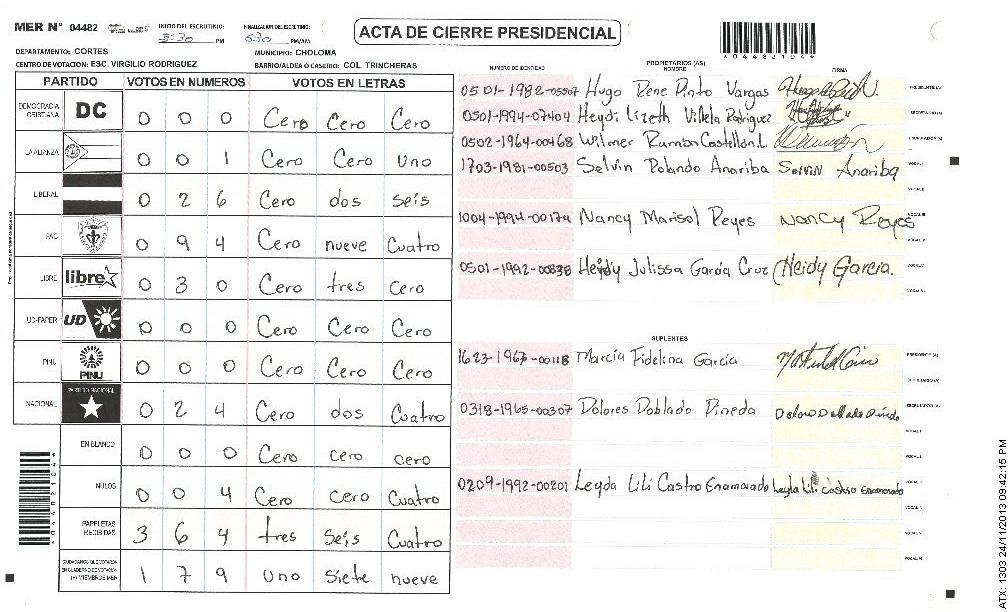 MER N° 04482 INICIO DEL ESCRUTINIO: 5:30 PM FINALIZACION DEL ESCRUTINIO: 6:30 PM/AM
ACTA DE CIERRE PRESIDENCIAL
*044821041*
DEPARTAMENTO: CORTES MUNICIPIO: CHOLOMA
CENTRO DE VOTACION: ESC. VIRGILIO RODRIGUEZ BARRIO/ALDEA O CASERIO: COL. TRINCHERAS
PARTIDO VOTOS EN NUMEROS VOTOS EN LETRAS
DEMOCRACIA CRISTIANA DC 0 0 0 Cero Cero Cero
LA ALIANZA 0 0 1 Cero Cero Uno
LIBERAL 0 2 6 Cero dos seis
PAC 0 9 4 Cero nueve Cuatro
LIBRE libre 0 3 0 Cero tres cero
UD-FAPER UD 0 0 0 Cero Cero Cero
PINU PINU 0 0 0 Cero Cero Cero
NACIONAL PARTIDO NACIONAL 0 2 4 Cero dos Cuatro
EN BLANCO 0 0 0 Cero cero cero
NULOS 0 0 4 Cero cero Cuatro
PAPELETAS RECIBIDAS 3 6 4 tres seis Cuatro
CIUDADANOS QUE VOTARON EN CUADERNO DE VOTACION (+) MIEMBROS MER 1 7 9 Uno siete nueve
NUMERO DE IDENTIDAD PROPIETARIOS (AS) NOMBRE FIRMA
0501-1982-05507 Hugo Rene Pinto Vargas PRESIDENTE (A)
0501-1994-07404 Heydi Lizeth Villela Rodriguez SECRETARIO (A)
0502-1964-00468 Wilmer Ramon Castellon L. ESCRUTADOR (A)
1703-1981-00503 Selvin Rolando Anariba Selvin Anariba VOCAL I
VOCAL II
1004-1994-00174 Nancy Marisol Reyes Nancy Reyes VOCAL III
VOCAL IV
0501-1992-00838 Heydy Julissa Garcia Cruz Heidy Garcia. VOCAL V
VOCAL VI
SUPLENTES
1623-1967-00118 Marcia Fidelina Garcia PRESIDENTE (A)
SECRETARIO (A)
0318-1965-00307 Dolores Doblado Pineda ESCRUTADOR (A)
VOCAL I
VOCAL II
0209-1992-00201 Leyda Lili Castro Enamorado Leyla Lili Castro Enamorado VOCAL III
VOCAL IV
VOCAL V
VOCAL VI
ATX: 1303 24/11/2013 09:42:15 PM